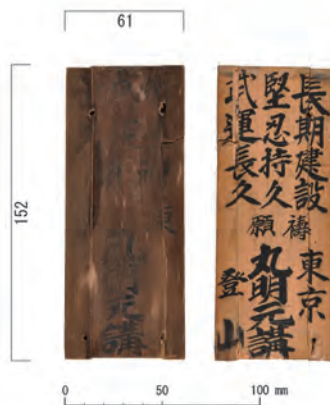 61
152
元講
長期建設
堅忍持久
武運長久
禱願
東京
丸明元講
登山
0 50 100 mm